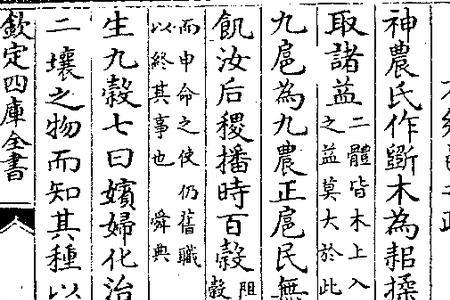 神農氏作斵木為耜揉
取諸益
二體皆木上入
之益莫大於此
九扈為九農正扈民無
飢汝后稷播時百穀
阻
穀
而申命之使仍舊職
以終其事也　舜典
生九穀七曰嬪婦化治
二壤之物而知其種以
欽定四庫全書